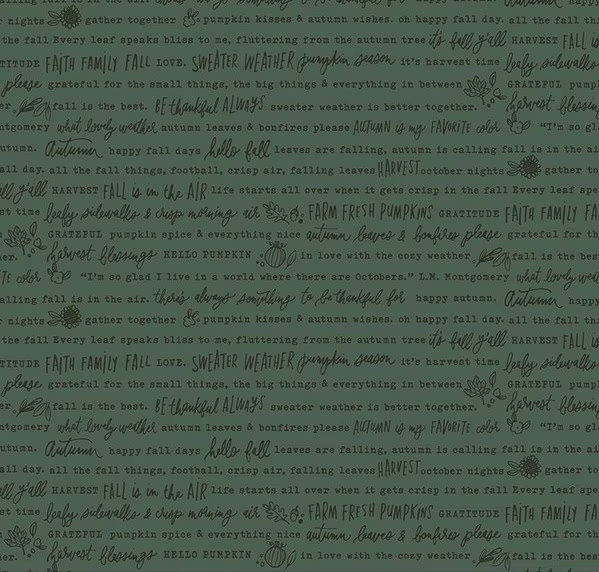 autumn. Autumn happy fall days hello fall leaves are falling, autumn is calling fall is in the air
r nights gather together pumpkin kisses & autumn wishes. oh happy fall day. all the fall thin
the fall Every leaf speaks bliss to me, fluttering from the autumn tree it's fall y'all HARVEST FALL is
TITUDE FAITH FAMILY FALL LOVE. SWEATER WEATHER pumpkin season it's harvest time leafy sidewalks
please grateful for the small things, the big things & everything in between GRATEFUL pumpk
er. fall is the best. BE thankful ALWAYS sweater weather is better together. harvest blessing
ntgomery what lovely weather autumn leaves & bonfires please AUTUMN is my FAVORITE color "I'm so gla
utumn. Autumn happy fall days hello fall leaves are falling, autumn is calling fall is in the ai
ll day. all the fall things, football, crisp air, falling leaves HARVEST october nights gather to
all y'all HARVEST FALL is in the AIR life starts all over when it gets crisp in the fall Every leaf spe
st time leafy sidewalks & crisp morning air FARM FRESH PUMPKINS GRATITUDE FAITH FAMILY FA
GRATEFUL pumpkin spice & everything nice autumn leaves & bonfires please grateful for the sma
er. harvest blessings HELLO PUMPKIN in love with the cozy weather fall is the be
ITE color "I'm so glad I live in a world where there are Octobers." L.M. Montgomery what lovely we
alling fall is in the air. there's always something to be thankful for happy autumn. Autumn happy
r nights gather together pumpkin kisses & autumn wishes. oh happy fall day. all the fall thin
the fall Every leaf speaks bliss to me, fluttering from the autumn tree it's fall y'all HARVEST FALL is
TITUDE FAITH FAMILY FALL LOVE. SWEATER WEATHER pumpkin season it's harvest time leafy sidewalks
please grateful for the small things, the big things & everything in between GRATEFUL pumpk
er. fall is the best. BE thankful ALWAYS sweater weather is better together. harvest blessing
ntgomery what lovely weather autumn leaves & bonfires please AUTUMN is my FAVORITE color "I'm so gl
utumn. Autumn happy fall days hello fall leaves are falling, autumn is calling fall is in the ai
ll day. all the fall things, football, crisp air, falling leaves HARVEST october nights gather to
all y'all HARVEST FALL is in the AIR life starts all over when it gets crisp in the fall Every leaf spe
st time leafy sidewalks & crisp morning air FARM FRESH PUMPKINS GRATITUDE FAITH FAMILY FA
GRATEFUL pumpkin spice & everything nice autumn leaves & bonfires please grateful for the sma
er. harvest blessings HELLO PUMPKIN in love with the cozy weather fall is the be